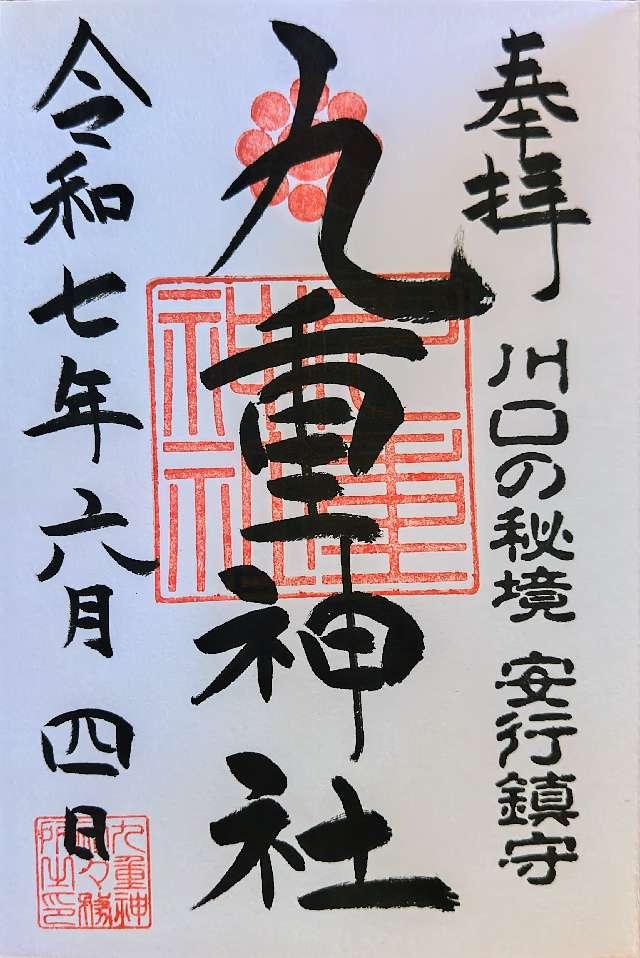 奉拝
川口の秘境 安行鎮守
九重神社
九重神社
令和七年六月四日
九重神社々務所之印